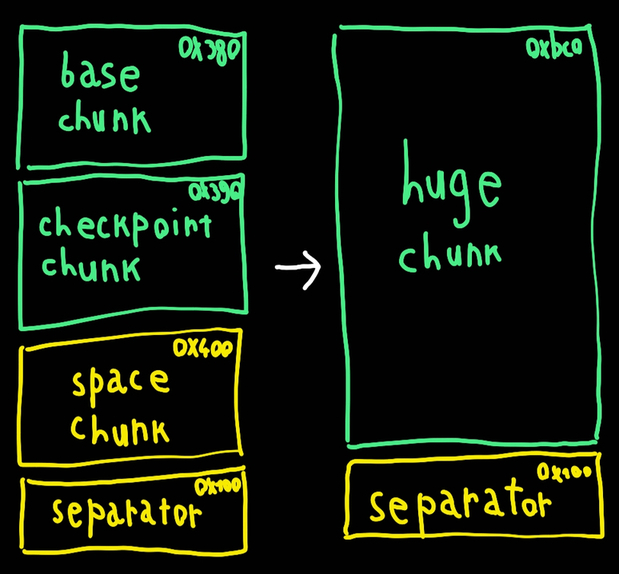 0x380
base
chunk
0x390
checkpoint
chunk
0x400
space
chunk
0x100
separator
→
0xbc0
huge
chunk
0x100
separator